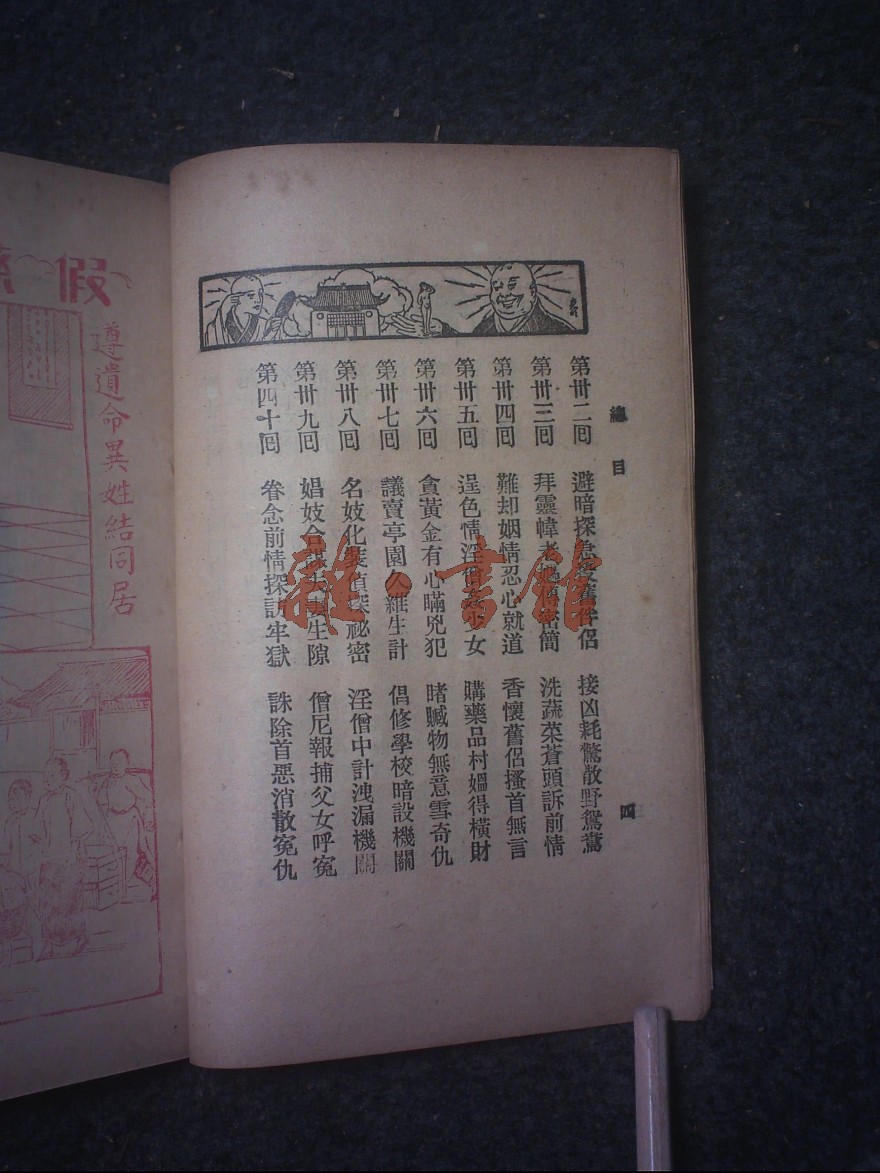 總目
四
第卅二回 避暗探急投舊伴侶 接凶耗驚散野鴛鴦
第卅三回 拜靈幃老 密簡 洗蔬菜蒼頭訴前情
第卅四回 難却姻情忍心就道 香懷舊侶搔首無言
第卅五回 逞色情淫僧 女 購藥品村嫗得橫財
第卅六回 貪黃金有心瞞兇犯 睹贓物無意雪奇仇
第卅七回 議賣亭園久維生計 倡修學校暗設機關
第卅八回 名妓化裝偵探祕密 淫僧中計洩漏機關
第卅九回 娼妓合謀夫妻生隙 僧尼報捕父女呼寃
第四十回 眷念前情探訪牢獄 誅除首惡消散寃仇
雜·書館
假
遵遺命異姓結同居